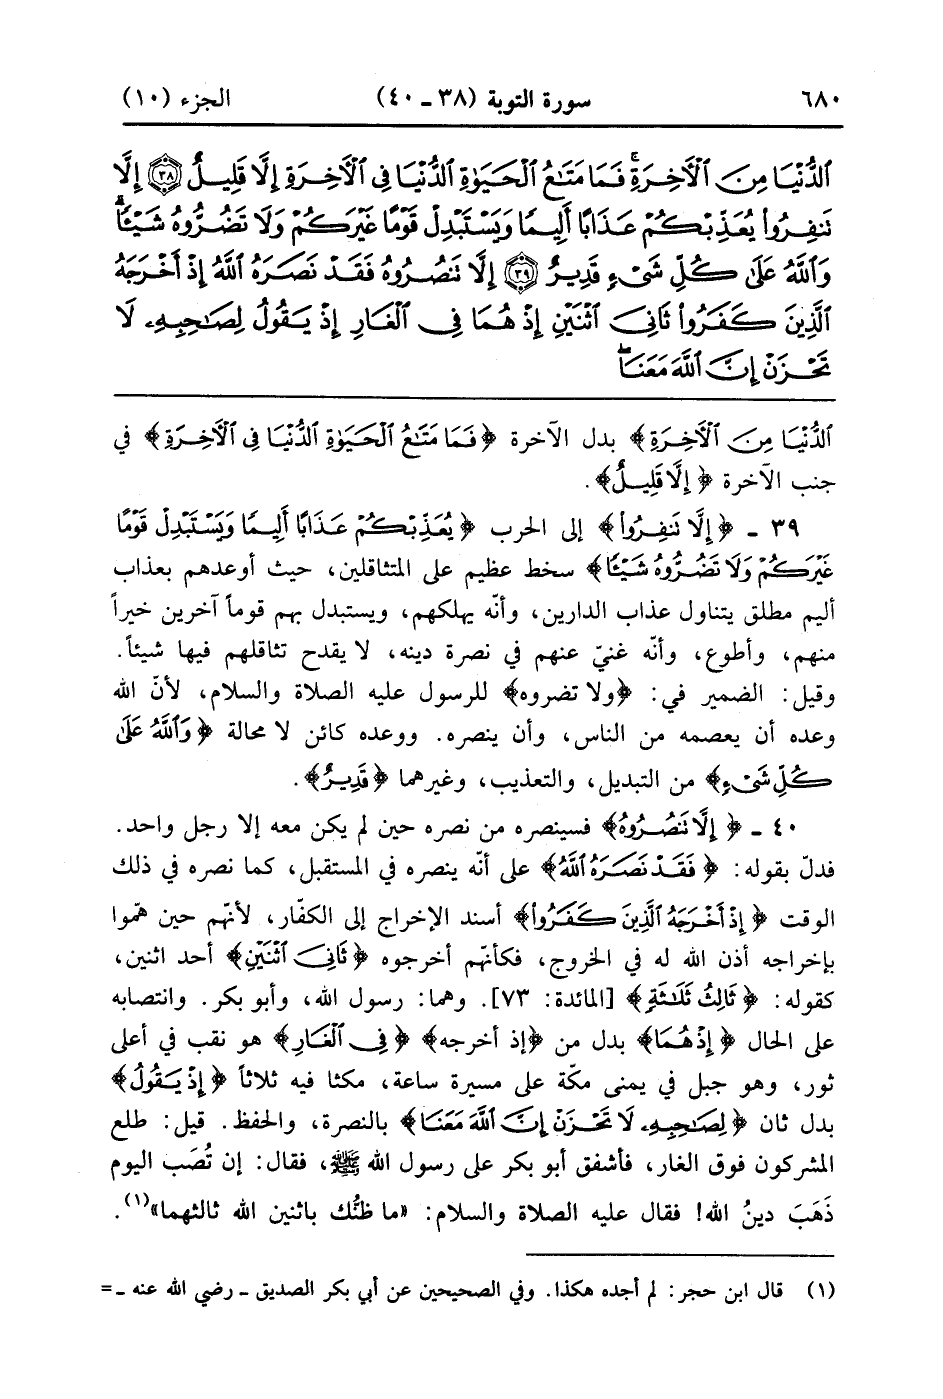 ٦٨٠ سورة التوبة (٣٨ - ٤٠) الجزء (١٠)
ٱلدُّنْيَا مِنَ ٱلْآخِرَةِۚ فَمَا مَتَٰعُ ٱلْحَيَوٰةِ ٱلدُّنْيَا فِى ٱلْآخِرَةِ إِلَّا قَلِيلٌ ٣٨ إِلَّا
تَنفِرُوا۟ يُعَذِّبْكُمْ عَذَابًا أَلِيمًا وَيَسْتَبْدِلْ قَوْمًا غَيْرَكُمْ وَلَا تَضُرُّوهُ شَيْـًٔاۗ
وَٱللَّهُ عَلَىٰ كُلِّ شَىْءٍ قَدِيرٌ ٣٩ إِلَّا تَنصُرُوهُ فَقَدْ نَصَرَهُ ٱللَّهُ إِذْ أَخْرَجَهُ
ٱلَّذِينَ كَفَرُوا۟ ثَانِىَ ٱثْنَيْنِ إِذْ هُمَا فِى ٱلْغَارِ إِذْ يَقُولُ لِصَٰحِبِهِۦ لَا
تَحْزَنْ إِنَّ ٱللَّهَ مَعَنَاۖ
ٱلدُّنْيَا مِنَ ٱلْآخِرَةِ﴾ بدل الآخرة ﴿فَمَا مَتَٰعُ ٱلْحَيَوٰةِ ٱلدُّنْيَا فِى ٱلْآخِرَةِ﴾ في
جنب الآخرة ﴿إِلَّا قَلِيلٌ﴾.
٣٩ - ﴿إِلَّا تَنفِرُوا۟﴾ إلى الحرب ﴿يُعَذِّبْكُمْ عَذَابًا أَلِيمًا وَيَسْتَبْدِلْ قَوْمًا
غَيْرَكُمْ وَلَا تَضُرُّوهُ شَيْـًٔا﴾ سخط عظيم على المتثاقلين، حيث أوعدهم بعذاب
أليم مطلق يتناول عذاب الدارين، وأنّه يهلكهم، ويستبدل بهم قوماً آخرين خيراً
منهم، وأطوع، وأنه غنيّ عنهم في نصرة دينه، لا يقدح تثاقلهم فيها شيئاً.
وقيل: الضمير في: ﴿ولا تضروه﴾ للرسول عليه الصلاة والسلام، لأنّ الله
وعده أن يعصمه من الناس، وأن ينصره. ووعده كائن لا محالة ﴿وَٱللَّهُ عَلَىٰ
كُلِّ شَىْءٍ﴾ من التبديل، والتعذيب، وغيرهما ﴿قَدِيرٌ﴾.
٤٠ - ﴿إِلَّا تَنصُرُوهُ﴾ فسينصره من نصره حين لم يكن معه إلا رجل واحد.
فدلّ بقوله: ﴿فَقَدْ نَصَرَهُ ٱللَّهُ﴾ على أنّه ينصره في المستقبل، كما نصره في ذلك
الوقت ﴿إِذْ أَخْرَجَهُ ٱلَّذِينَ كَفَرُوا۟﴾ أسند الإخراج إلى الكفّار، لأنهم حين همّوا
بإخراجه أذن الله له في الخروج، فكأنهم أخرجوه ﴿ثَانِىَ ٱثْنَيْنِ﴾ أحد اثنين،
كقوله: ﴿ثَالِثُ ثَلَٰثَةٍ﴾ [المائدة: ٧٣]. وهما: رسول الله، وأبو بكر. وانتصابه
على الحال ﴿إِذْ هُمَا﴾ بدل من ﴿إذ أخرجه﴾ ﴿فِى ٱلْغَارِ﴾ هو نقب في أعلى
ثور، وهو جبل في يمنى مكّة على مسيرة ساعة، مكثا فيه ثلاثاً ﴿إِذْ يَقُولُ﴾
بدل ثان ﴿لِصَٰحِبِهِۦ لَا تَحْزَنْ إِنَّ ٱللَّهَ مَعَنَا﴾ بالنصرة، والحفظ. قيل: طلع
المشركون فوق الغار، فأشفق أبو بكر على رسول الله ﷺ، فقال: إن تُصَب اليوم
ذَهَبَ دينُ الله! فقال عليه الصلاة والسلام: «ما ظنُّك باثنين الله ثالثهما»(١).
(١) قال ابن حجر: لم أجده هكذا. وفي الصحيحين عن أبي بكر الصديق - رضي الله عنه - =